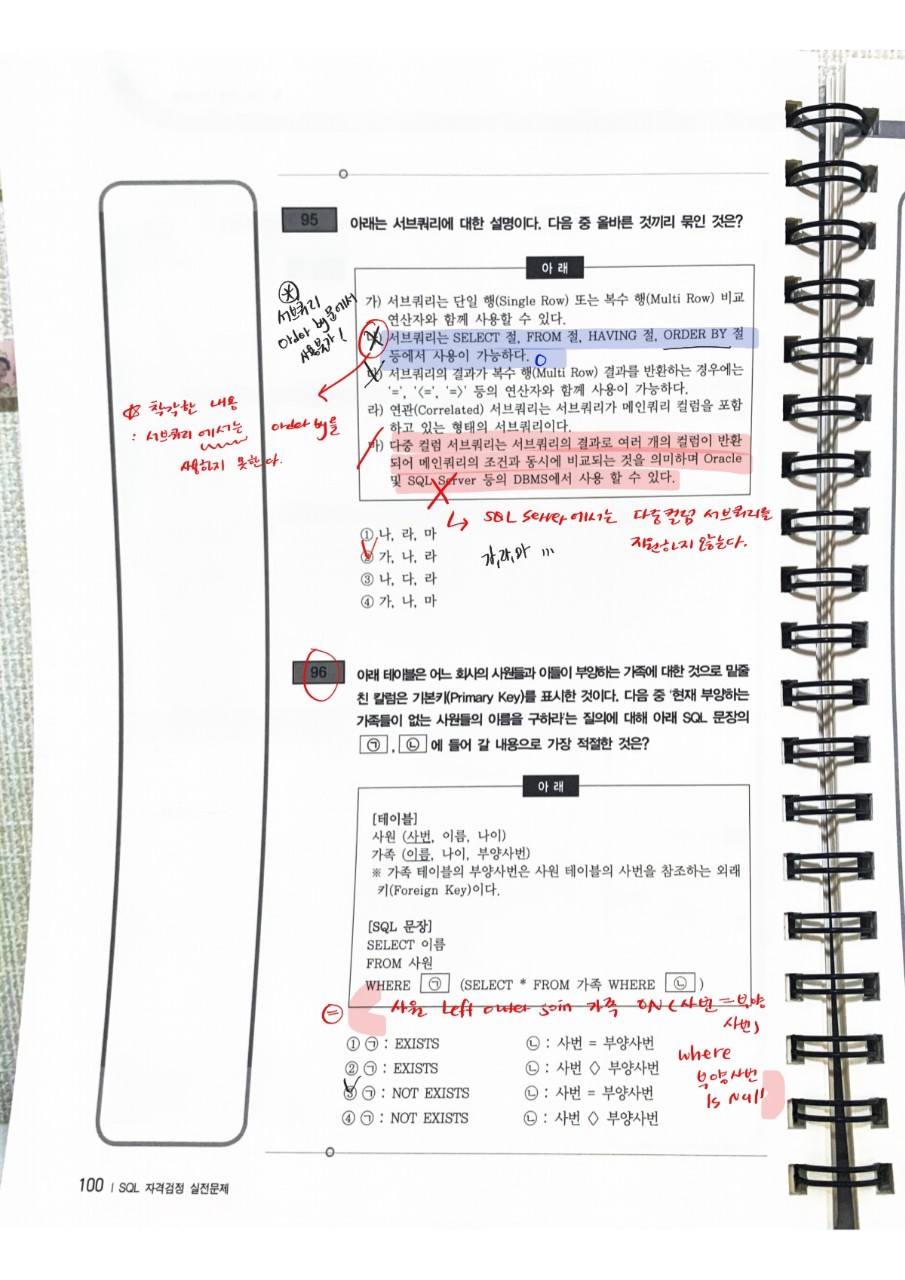 95 아래는 서브쿼리에 대한 설명이다. 다음 중 올바른 것끼리 묶인 것은?
아 래
가) 서브쿼리는 단일 행(Single Row) 또는 복수 행(Multi Row) 비교
연산자와 함께 사용할 수 있다.
서브쿼리는 SELECT 절, FROM 절, HAVING 절, ORDER BY 절
등에서 사용이 가능하다.
서브쿼리의 결과가 복수 행(Multi Row) 결과를 반환하는 경우에는
'=', '<=', '=>' 등의 연산자와 함께 사용이 가능하다.
라) 연관(Correlated) 서브쿼리는 서브쿼리가 메인쿼리 컬럼을 포함
하고 있는 형태의 서브쿼리이다.
마) 다중 컬럼 서브쿼리는 서브쿼리의 결과로 여러 개의 컬럼이 반환
되어 메인쿼리의 조건과 동시에 비교되는 것을 의미하며 Oracle
및 SQL Server 등의 DBMS에서 사용 할 수 있다.
서브쿼리
Order by문에서
사용불가!
착각한 내용
: 서브쿼리에서는 order by을
사용하지 못한다.
SQL Server에서는 다중컬럼 서브쿼리를
지원하지 않는다.
① 나, 라, 마
② 가, 나, 라
③ 나, 다, 라
④ 가, 나, 마
96 아래 테이블은 어느 회사의 사원들과 이들이 부양하는 가족에 대한 것으로 밑줄
친 칼럼은 기본키(Primary Key)를 표시한 것이다. 다음 중 '현재 부양하는
가족들이 없는 사원들의 이름을 구하라'는 질의에 대해 아래 SQL 문장의
㉠ , ㉡ 에 들어 갈 내용으로 가장 적절한 것은?
아 래
[테이블]
사원 (사번, 이름, 나이)
가족 (이름, 나이, 부양사번)
※ 가족 테이블의 부양사번은 사원 테이블의 사번을 참조하는 외래
키(Foreign Key)이다.
[SQL 문장]
SELECT 이름
FROM 사원
WHERE ㉠ (SELECT * FROM 가족 WHERE ㉡ )
사원 left outer join 가족 ON (사번=부양
사번)
where
부양사번
Is Null
① ㉠ : EXISTS ㉡ : 사번 = 부양사번
② ㉠ : EXISTS ㉡ : 사번 ◇ 부양사번
③ ㉠ : NOT EXISTS ㉡ : 사번 = 부양사번
④ ㉠ : NOT EXISTS ㉡ : 사번 ◇ 부양사번
100 | SQL 자격검정 실전문제